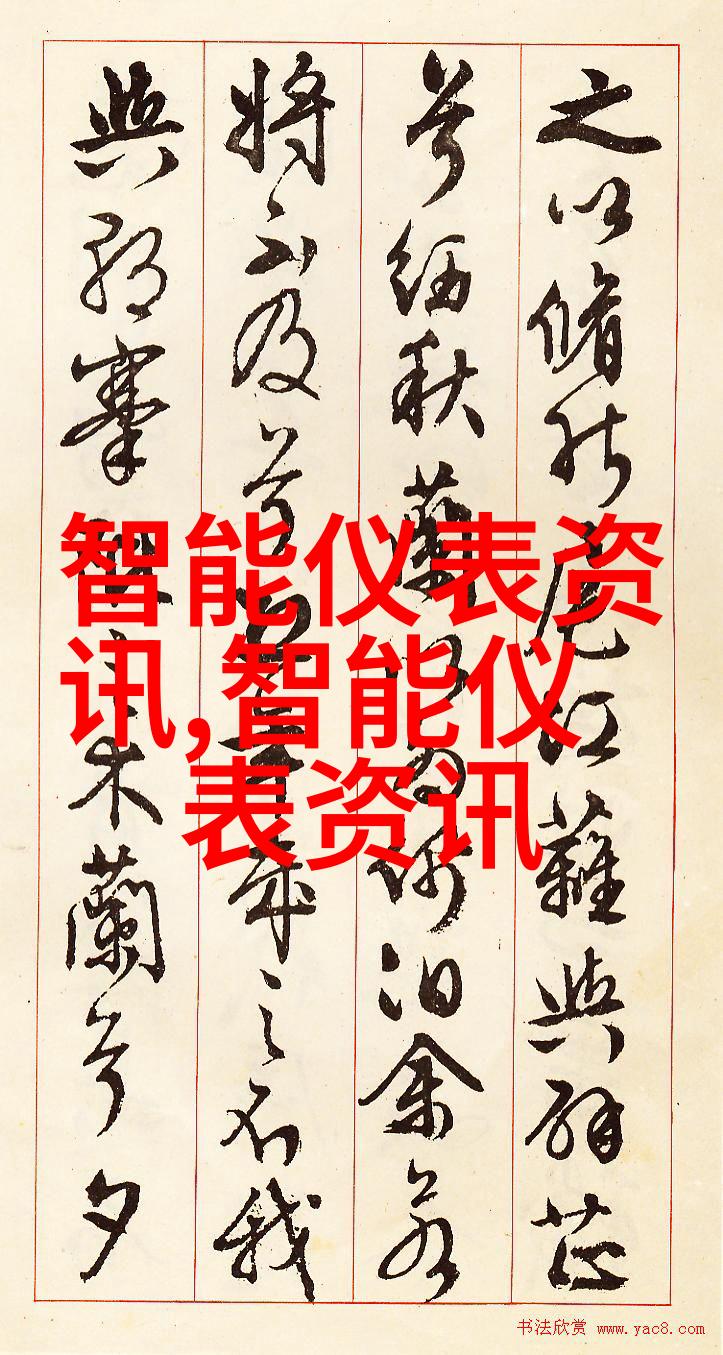 之以脩能扈江蘺與辟芷
兮紉秋蘭以為佩汩余若
將不及兮恐年歲之不我
與朝搴阰之木蘭兮夕
智能仪表资
讯,智能仪
表资讯
书法欣赏 www.yac8.com